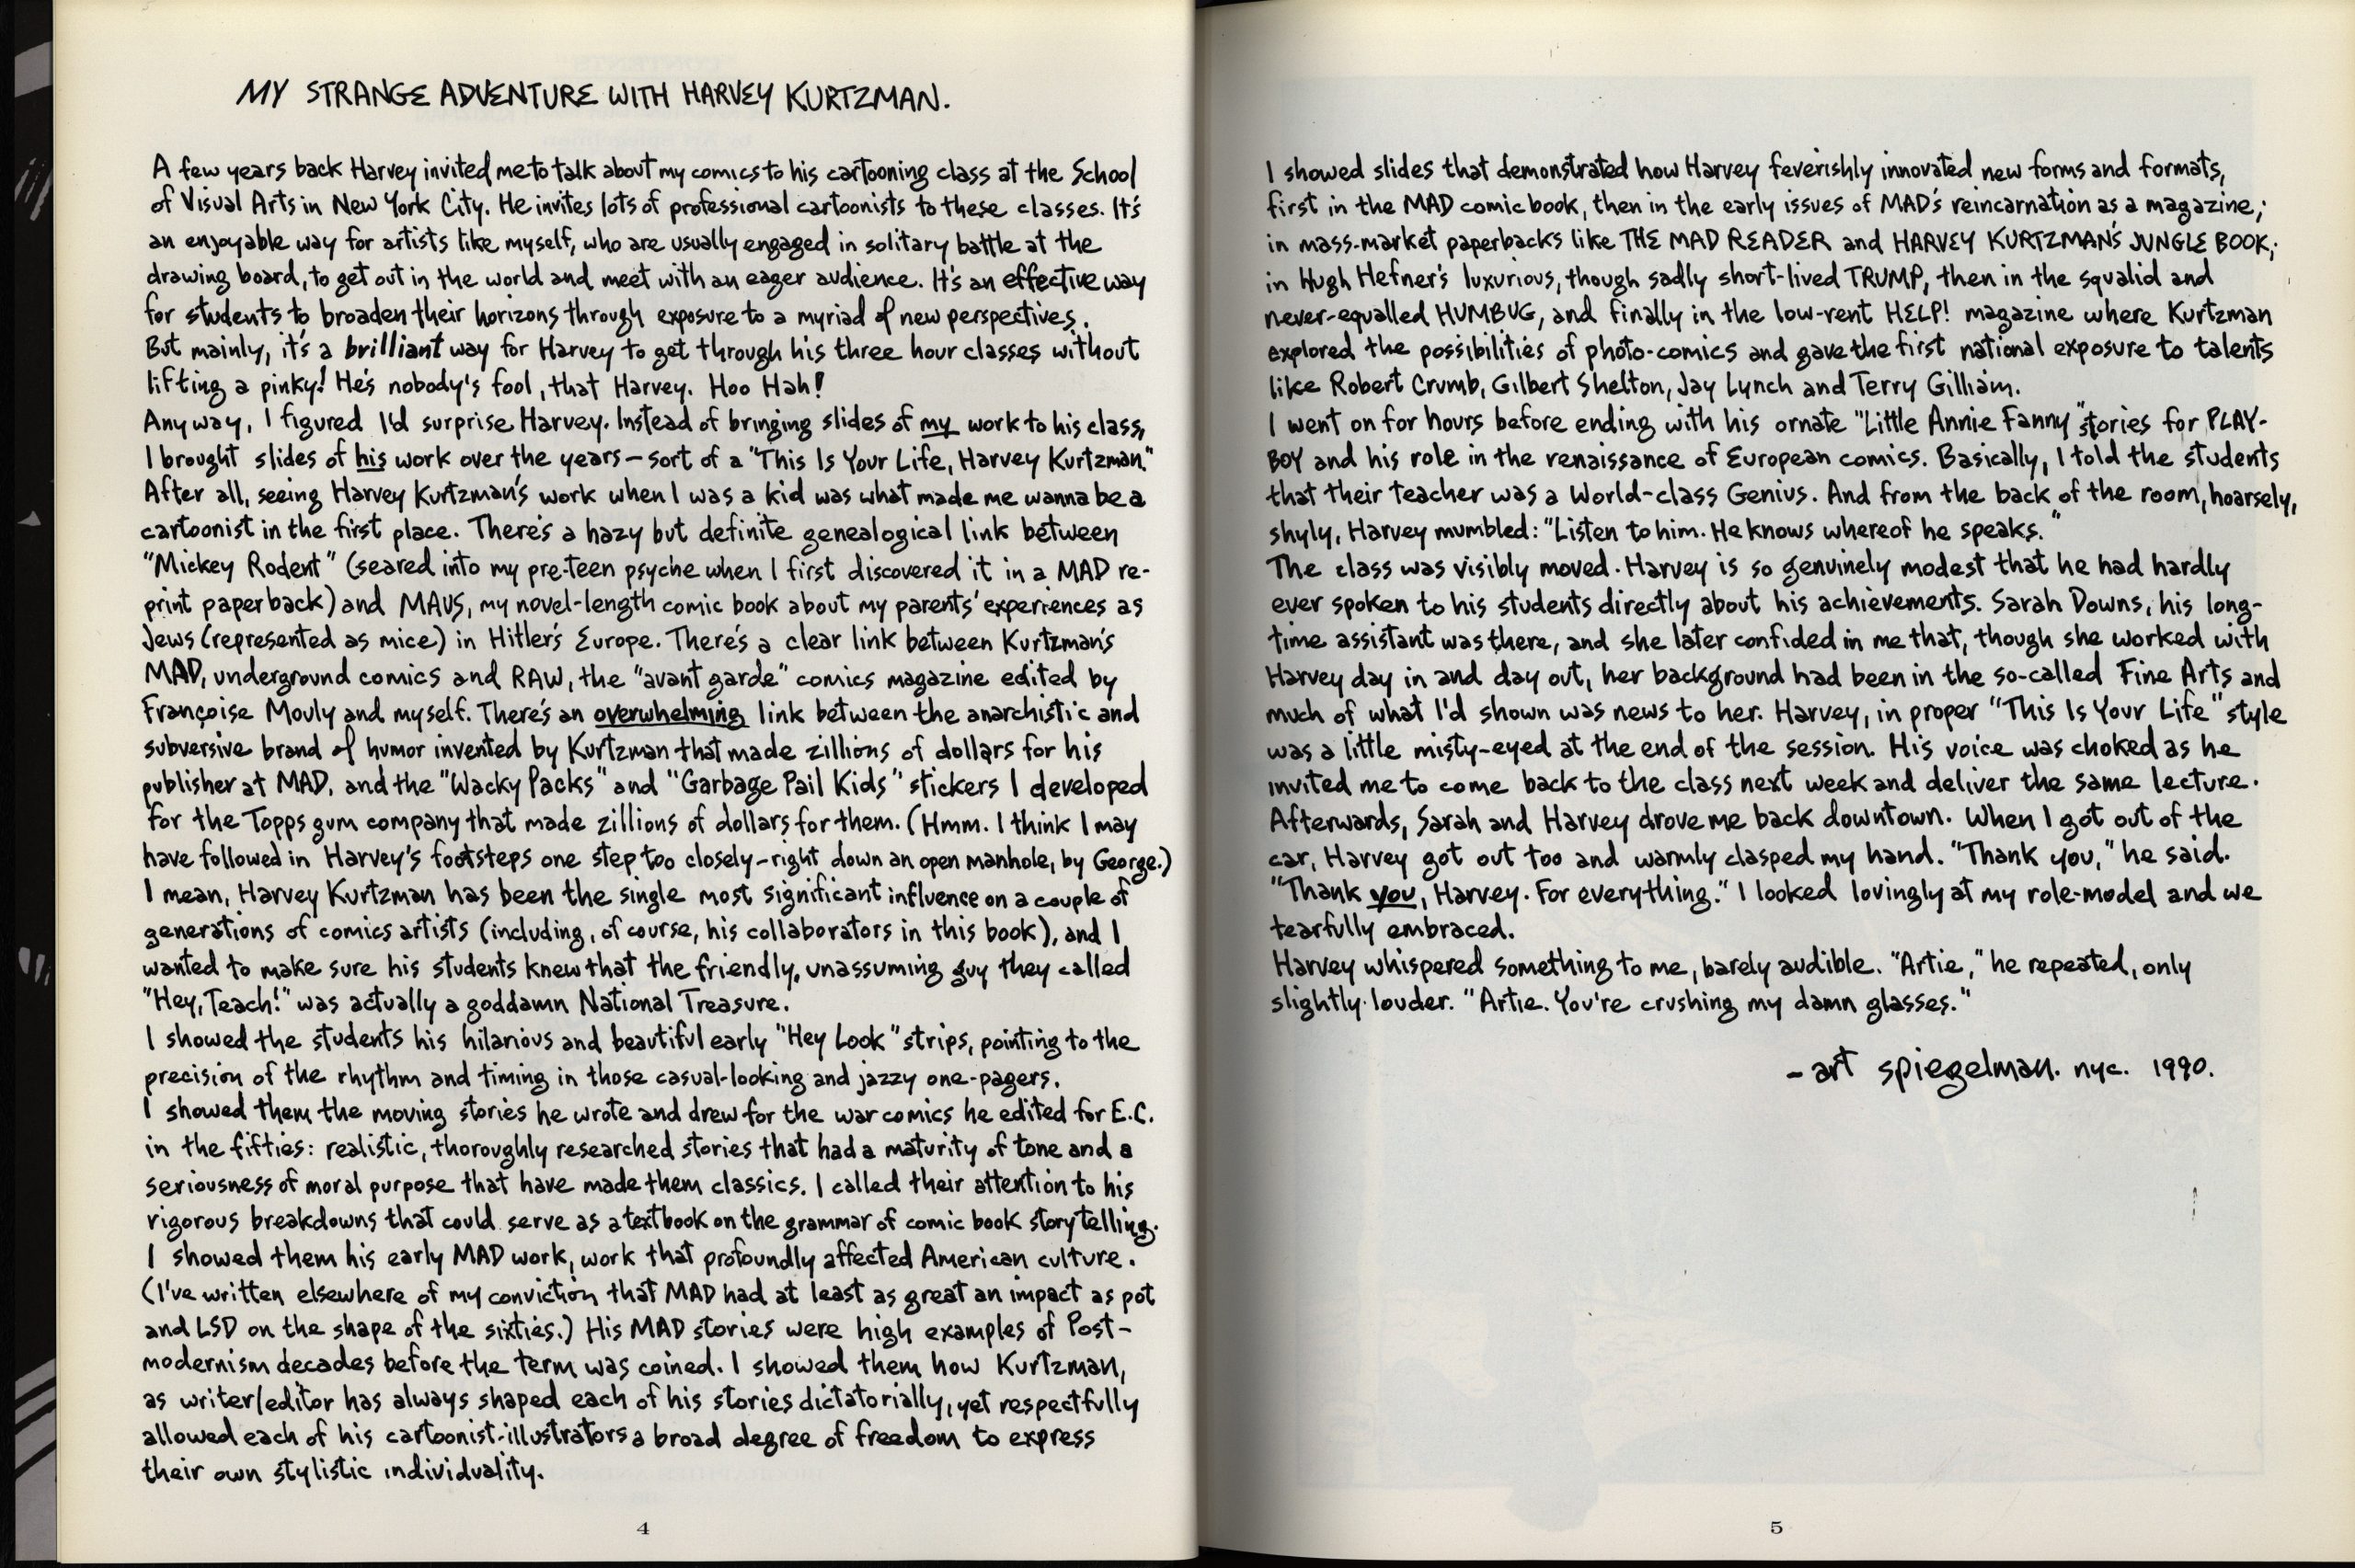 MY STRANGE ADVENTURE WITH HARVEY KURTZMAN.
A few years back Harvey invited me to talk about my comics to his cartooning class at the School
of Visual Arts in New York City. He invites lots of professional cartoonists to these classes. It's
an enjoyable way for artists like myself, who are usually engaged in solitary battle at the
drawing board, to get out in the world and meet with an eager audience. It's an effective way
for students to broaden their horizons through exposure to a myriad of new perspectives.
But mainly, it's a brilliant way for Harvey to get through his three hour classes without
lifting a pinky! He's nobody's fool, that Harvey. Hoo Hah!
Anyway, I figured I'd surprise Harvey. Instead of bringing slides of my work to his class,
I brought slides of his work over the years – sort of a "This Is Your Life, Harvey Kurtzman."
After all, seeing Harvey Kurtzman's work when I was a kid was what made me wanna be a
cartoonist in the first place. There's a hazy but definite genealogical link between
"Mickey Rodent" (seared into my pre-teen psyche when I first discovered it in a MAD re-
print paperback) and MAUS, my novel-length comic book about my parents' experiences as
Jews (represented as mice) in Hitler's Europe. There's a clear link between Kurtzman's
MAD, underground comics and RAW, the "avant garde" comics magazine edited by
Françoise Mouly and myself. There's an overwhelming link between the anarchistic and
subversive brand of humor invented by Kurtzman that made zillions of dollars for his
publisher at MAD, and the "Wacky Packs" and "Garbage Pail Kids" stickers I developed
for the Topps gum company that made zillions of dollars for them. (Hmm. I think I may
have followed in Harvey's footsteps one step too closely – right down an open manhole, by George.)
I mean, Harvey Kurtzman has been the single most significant influence on a couple of
generations of comics artists (including, of course, his collaborators in this book), and I
wanted to make sure his students knew that the friendly, unassuming guy they called
"Hey, Teach!" was actually a goddamn National Treasure.
I showed the students his hilarious and beautiful early "Hey Look" strips, pointing to the
precision of the rhythm and timing in those casual-looking and jazzy one-pagers.
I showed them the moving stories he wrote and drew for the war comics he edited for E.C.
in the fifties: realistic, thoroughly researched stories that had a maturity of tone and a
seriousness of moral purpose that have made them classics. I called their attention to his
rigorous breakdowns that could serve as a textbook on the grammar of comic book storytelling.
I showed them his early MAD work, work that profoundly affected American culture.
(I've written elsewhere of my conviction that MAD had at least as great an impact as pot
and LSD on the shape of the sixties.) His MAD stories were high examples of Post-
modernism decades before the term was coined. I showed them how Kurtzman,
as writer/editor has always shaped each of his stories dictatorially, yet respectfully
allowed each of his cartoonist-illustrators a broad degree of freedom to express
their own stylistic individuality.
4
I showed slides that demonstrated how Harvey feverishly innovated new forms and formats,
first in the MAD comic book, then in the early issues of MAD's reincarnation as a magazine;
in mass-market paperbacks like THE MAD READER and HARVEY KURTZMAN'S JUNGLE BOOK;
in Hugh Hefner's luxurious, though sadly short-lived TRUMP, then in the squalid and
never-equalled HUMBUG, and finally in the low-rent HELP! magazine where Kurtzman
explored the possibilities of photo-comics and gave the first national exposure to talents
like Robert Crumb, Gilbert Shelton, Jay Lynch and Terry Gilliam.
I went on for hours before ending with his ornate "Little Annie Fanny" stories for PLAY-
BOY and his role in the renaissance of European comics. Basically, I told the students
that their teacher was a World-class Genius. And from the back of the room, hoarsely,
shyly, Harvey mumbled: "Listen to him. He knows whereof he speaks."
The class was visibly moved. Harvey is so genuinely modest that he had hardly
ever spoken to his students directly about his achievements. Sarah Downs, his long-
time assistant was there, and she later confided in me that, though she worked with
Harvey day in and day out, her background had been in the so-called Fine Arts and
much of what I'd shown was news to her. Harvey, in proper "This Is Your Life" style
was a little misty-eyed at the end of the session. His voice was choked as he
invited me to come back to the class next week and deliver the same lecture.
Afterwards, Sarah and Harvey drove me back downtown. When I got out of the
car, Harvey got out too and warmly clasped my hand. "Thank you," he said.
"Thank you, Harvey. For everything." I looked lovingly at my role-model and we
tearfully embraced.
Harvey whispered something to me, barely audible. "Artie," he repeated, only
slightly louder. "Artie. You're crushing my damn glasses."
– art spiegelman. nyc. 1990.
5